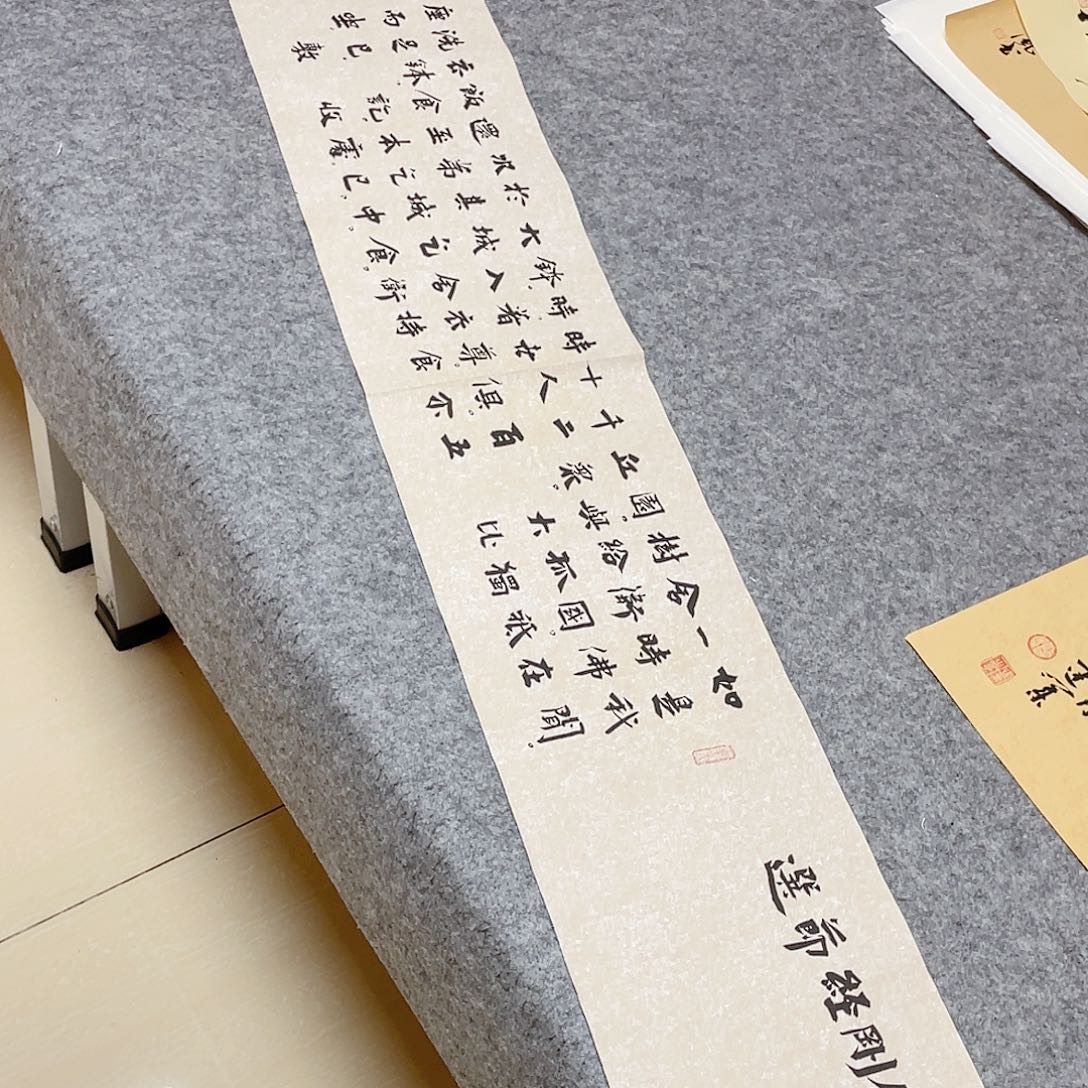 剛經節選
如是我聞。
一時佛在
舍衛國。祇
樹給孤獨
園。與大比
丘眾。
千二百五
十人俱。尔
時世尊食
時,著衣持
鉢,入舍衛
大城乞食。
於其城中。
次第乞已,
還至本處。
飯食訖,收
衣鉢,
洗足已,敷
座而坐。